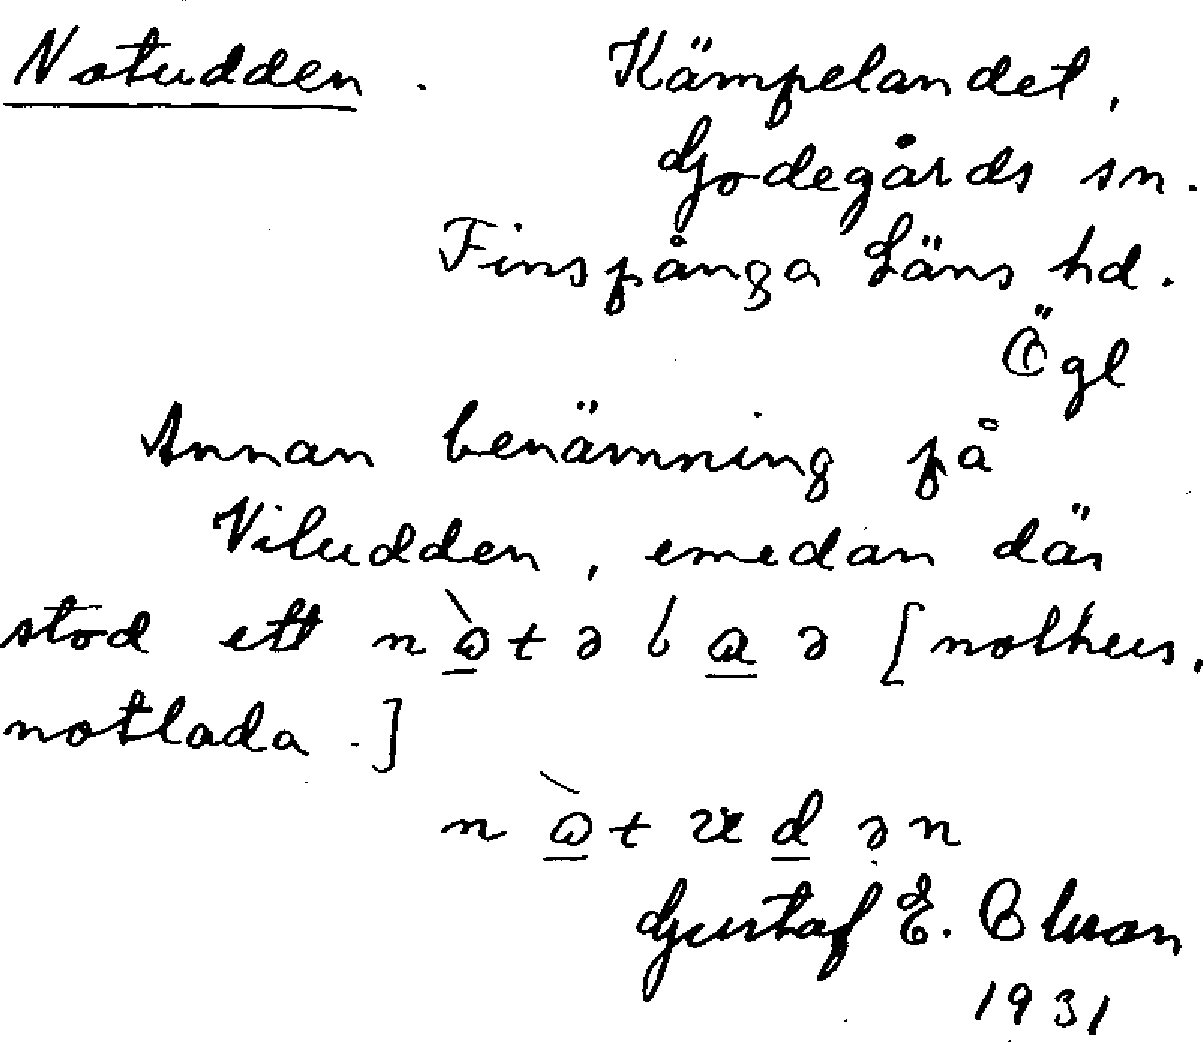 Notudden. Kämpelandet,
Godegårds sn.
Finspånga Läns hd.
Ögl
Annan benämning på
Viludden, emedan där
stod ett [nothus,
notlada.]
Gustaf E.
1931